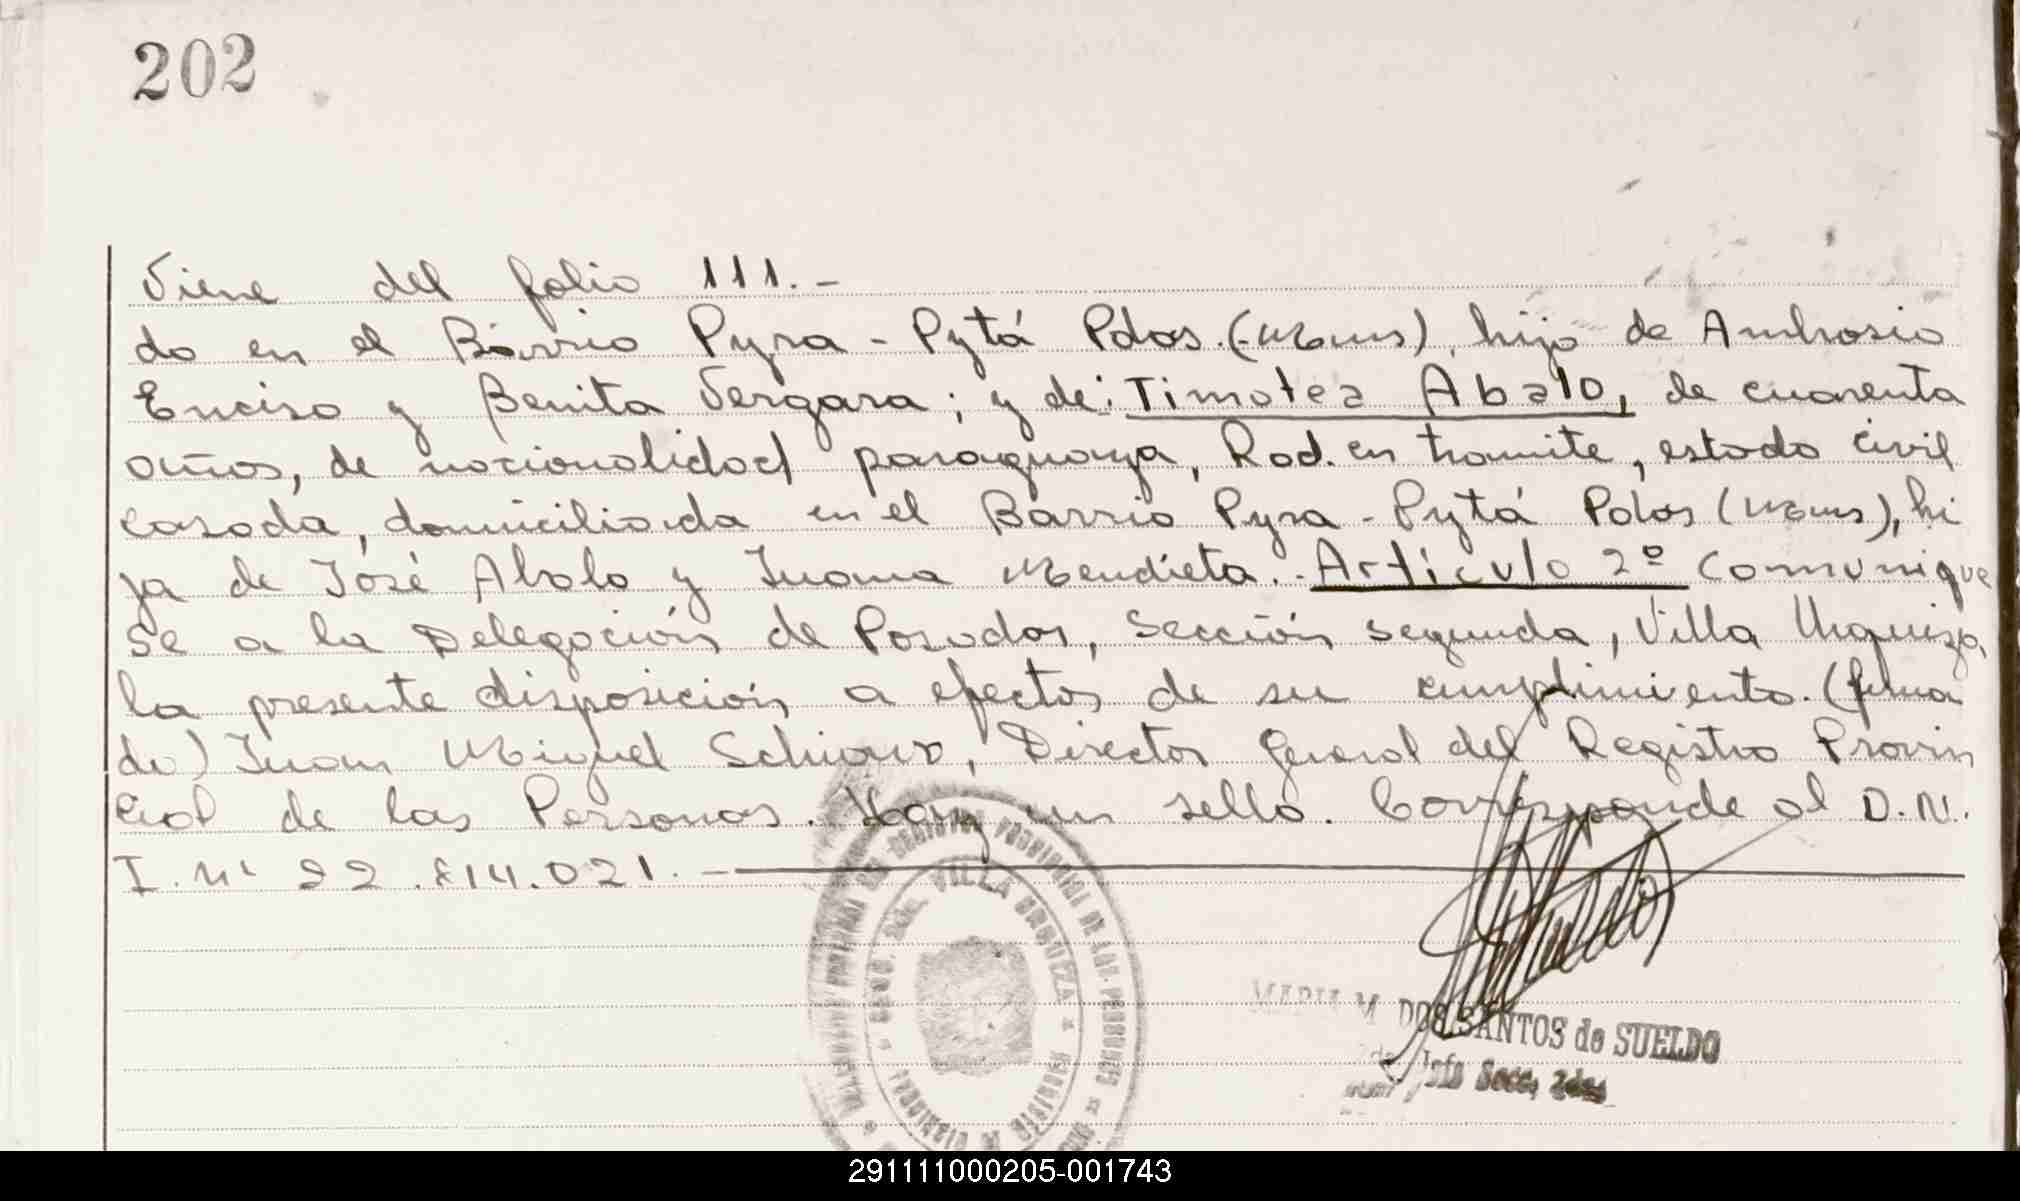 202
Viene del folio 111.-
do en el Barrio Pyra-Pytá Pdas.(Mnes), hijo de Ambrosio
Enciso y Benita Vergara; y de: Timotea Abalo, de cuarenta
años, de nacionalidad paraguaya, Rad. en tramite, estado civil
casada, domiciliada en el Barrio Pyra-Pytá Pdas (Mnes), hi
ja de José Abalo y Juana Mendieta.- Artículo 2º Comunique
se a la Delegación de Posadas, Sección segunda, Villa Urquiza,
la presente disposición a efectos de su cumplimiento. (firma
do) Juan Miguel Director General del Registro Provin
cial de las Personas. Hay un sello. Corresponde al D.N.
I. Nº 22.814.021.-
REGISTRO PROVINCIAL DE LAS PERSONAS
VILLA URQUIZA
MARIA M. DOS SANTOS de SUELDO
Jefa Secc. 2da
291111000205-001743